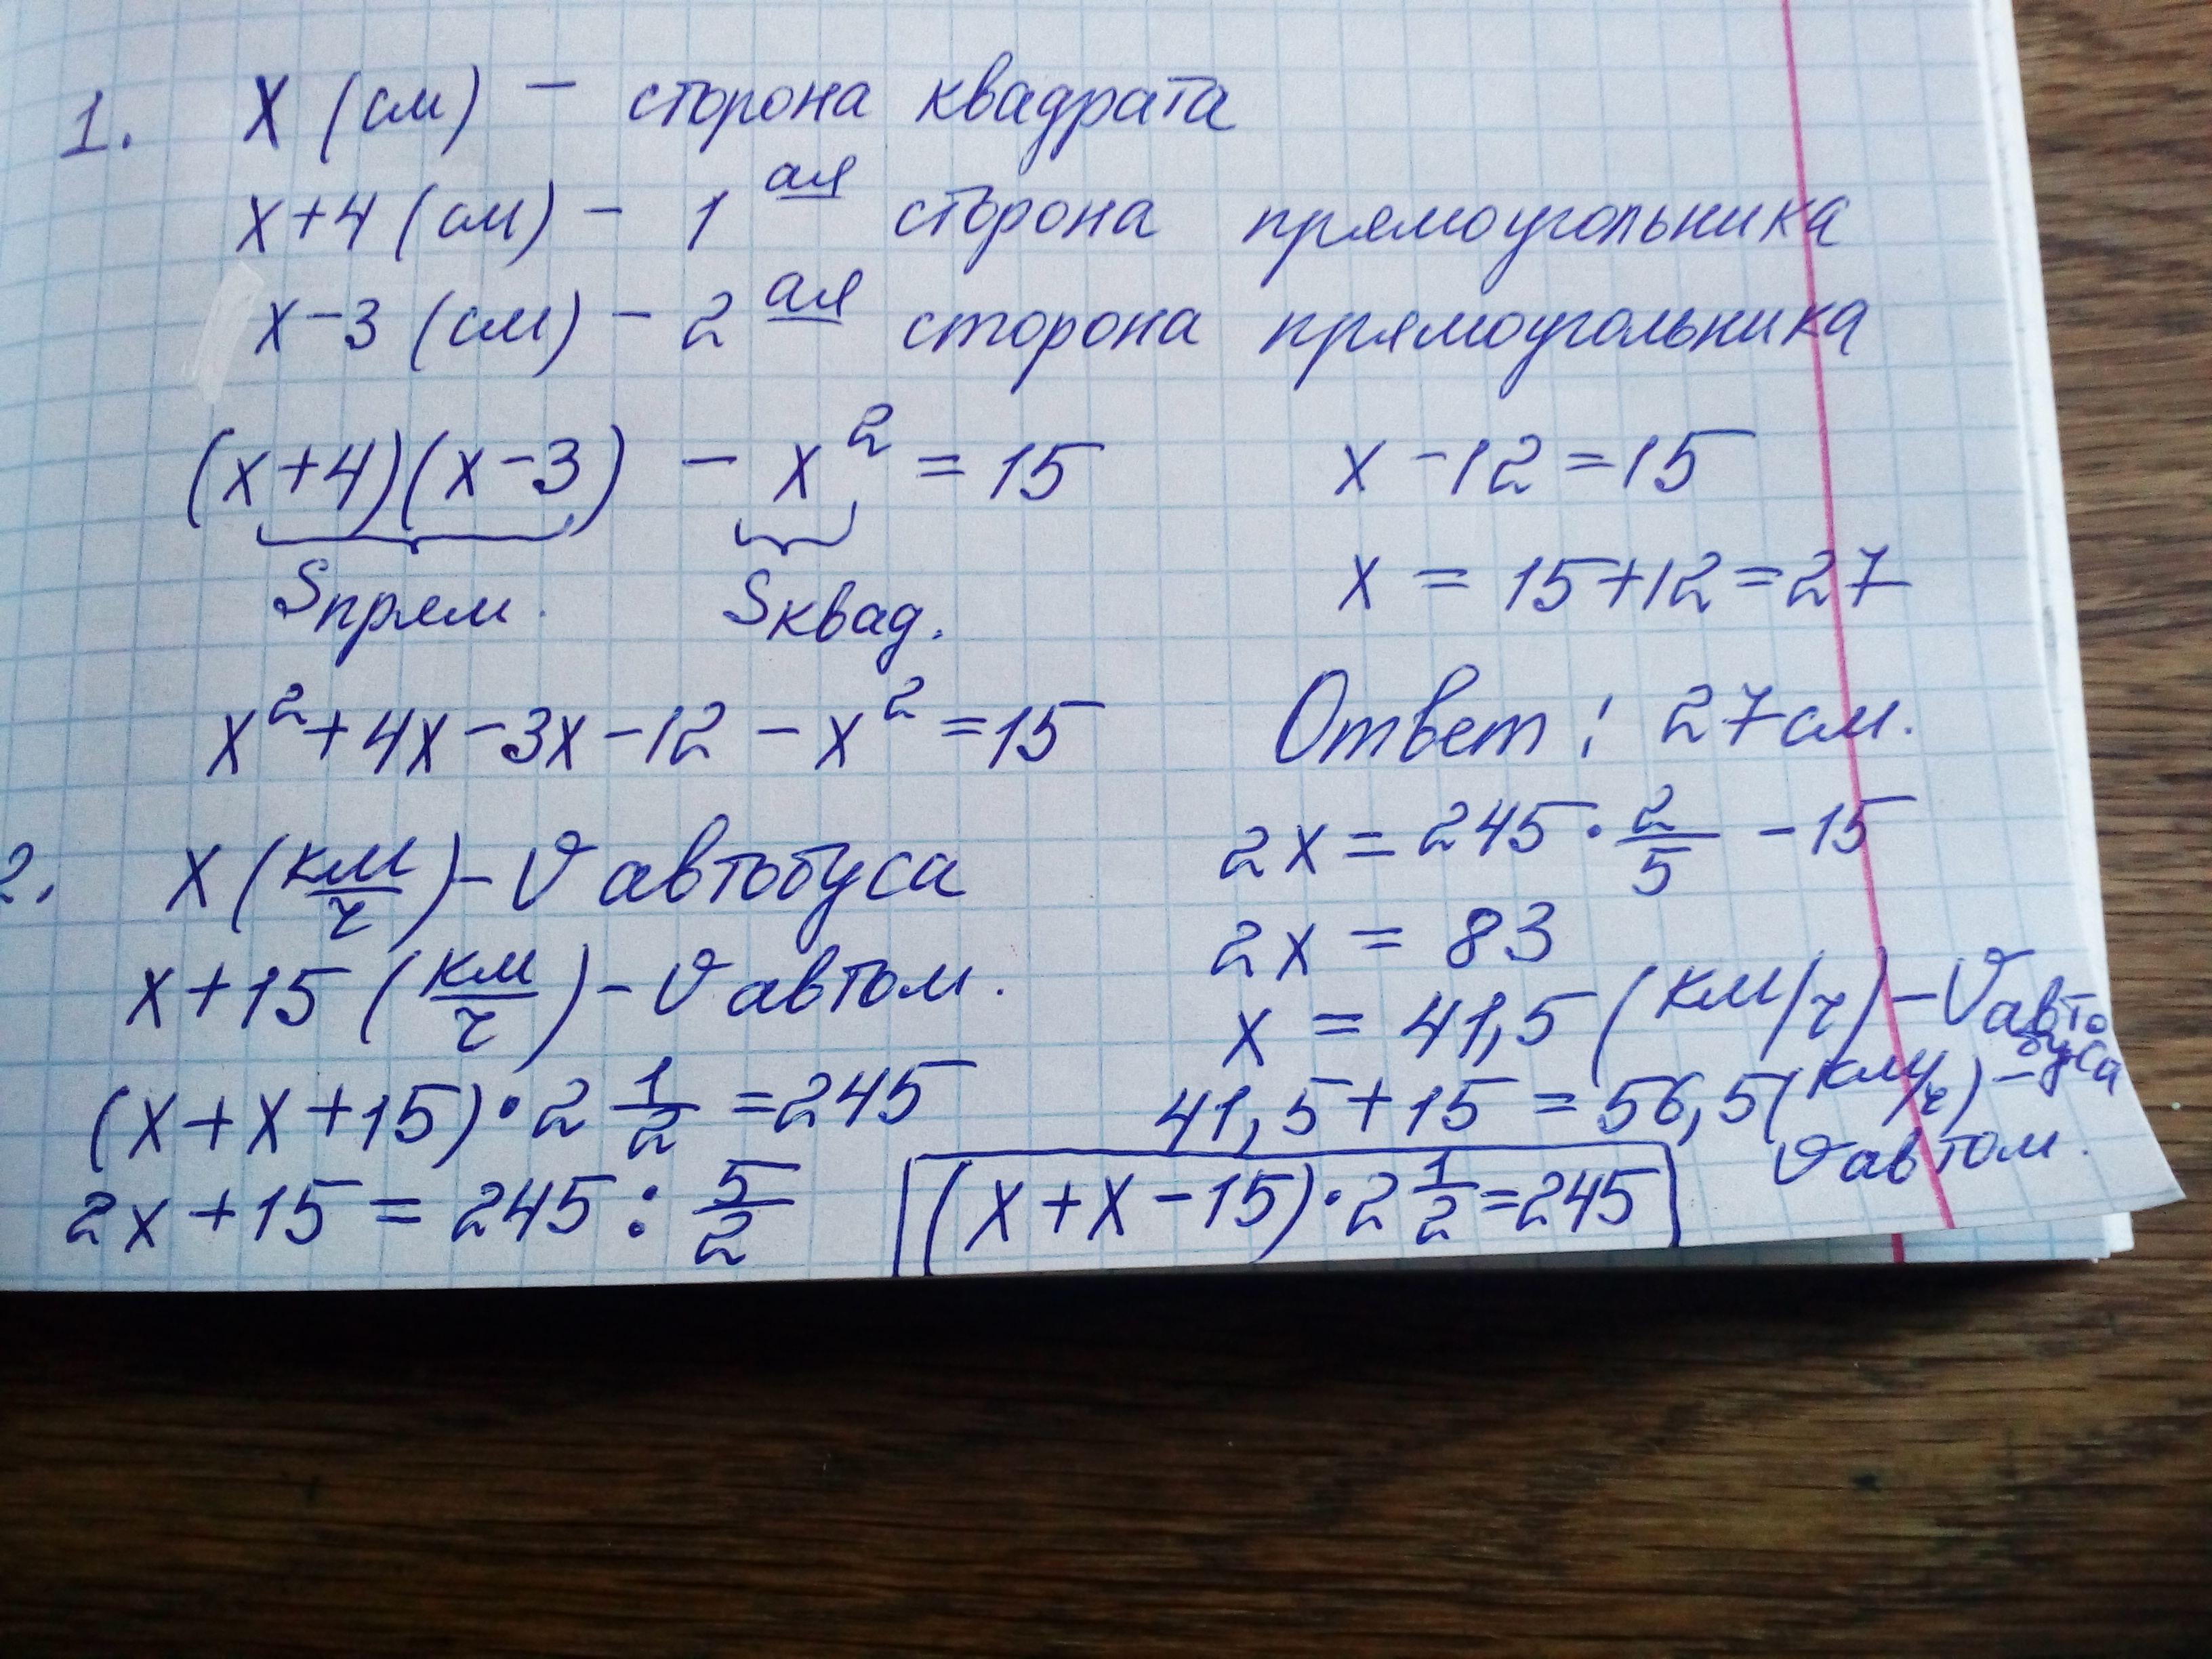 1. X (см) – сторона квадрата
x+4 (см) – 1 ая сторона прямоугольника
x–3 (см) – 2 ая сторона прямоугольника
(x+4)(x–3) – x² = 15
Sпрям. Sквад.
x²+4x–3x–12–x²=15
x–12=15
x = 15+12=27
Ответ: 27см.
2. X (км/ч) – V автобуса
x+15 (км/ч) – V автом.
(x+x+15)·2 1/2 =245
2x+15=245 : 5/2
2x=245·2/5 –15
2x = 83
x = 41,5 (км/ч) – Vавтобуса
41,5+15=56,5 (км/ч) –
Vавтом.
(x+x–15)·2 1/2=245